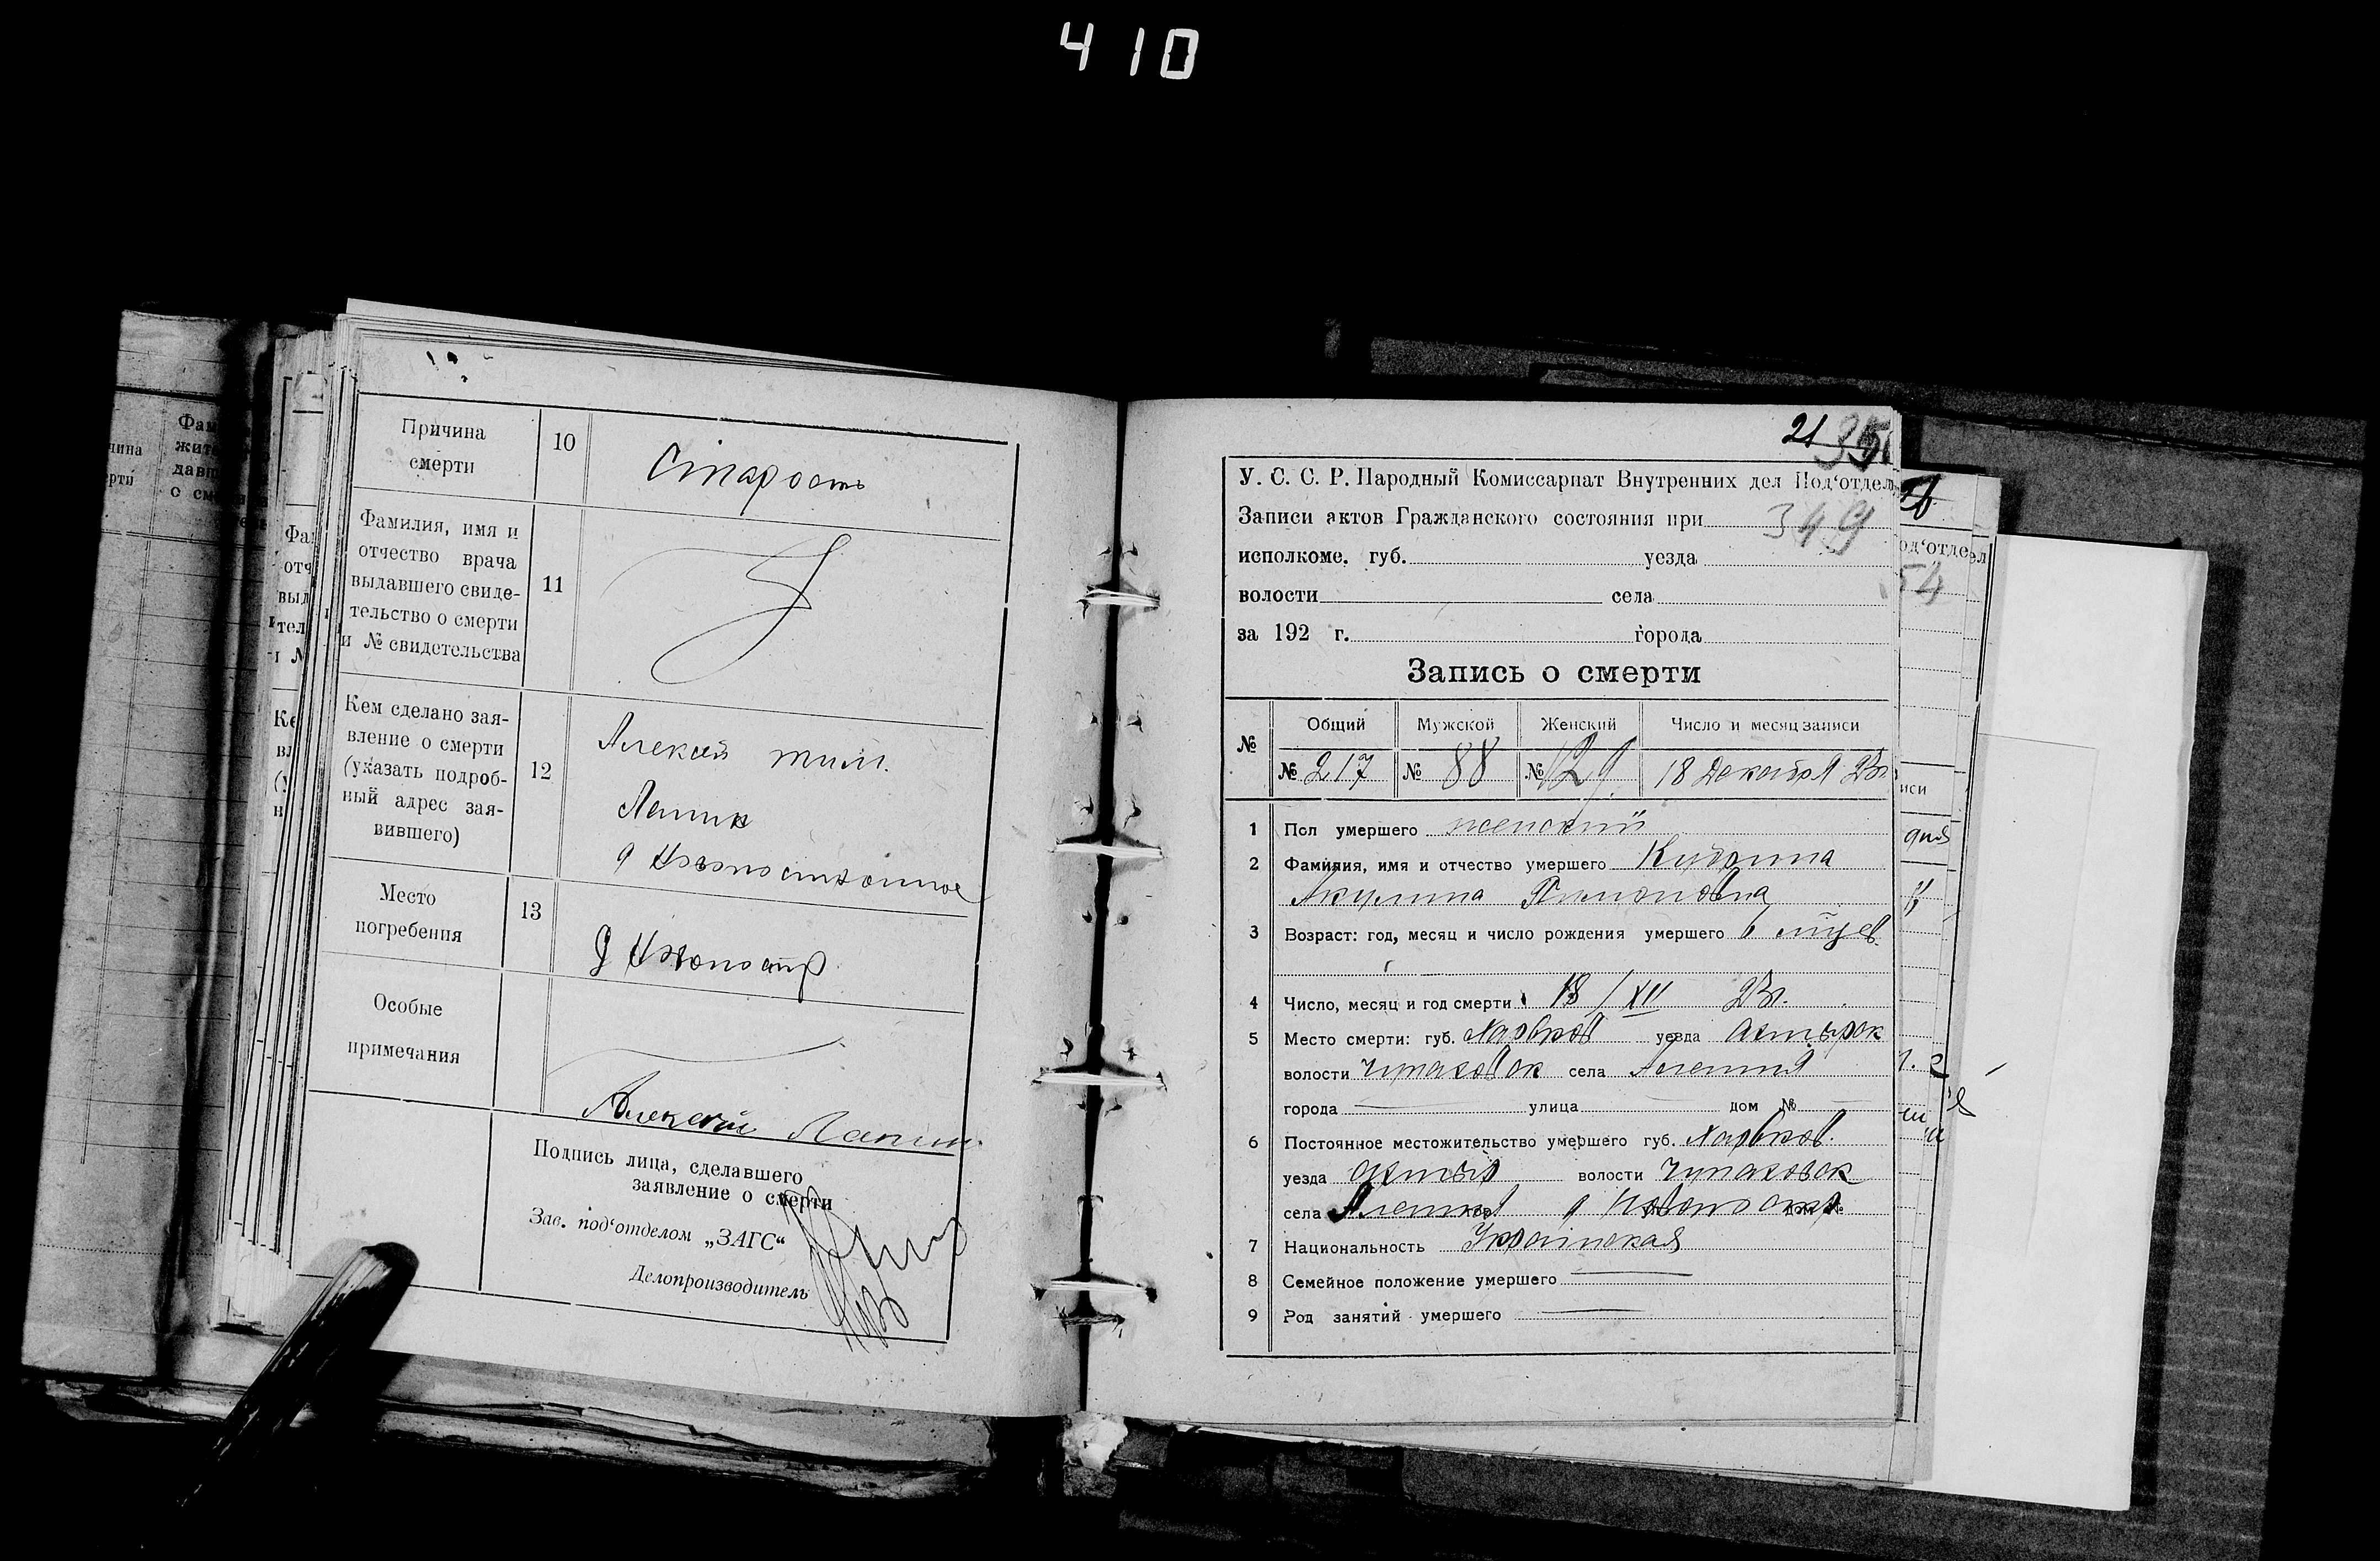 410
Причина смерти
10
Старость
Фамилия, имя и
отчество врача
выдавшего свиде-
тельство о смерти
и № свидетельства
11
Кем сделано зая-
вление о смерти
(указать подроб-
ный адрес зая-
вившего)
12
Алексей тим.
Лапин
Место
погребения
13
Особые
примечания
Алексей Лапин
Подпись лица, сделавшего
заявление о смерти
Зав. под‘отделом „ЗАГС“
Делопроизводитель
21
У. С. С. Р. Народный Комиссариат Внутренних дел Под‘отдел
Записи актов Гражданского состояния при 349
исполкоме. губ. уезда
волости села
за 192 г. города
Запись о смерти
№ Общий Мужской Женский Число и месяц записи
№ 217 № 88 № 129 18 Декабря 23г.
1 Пол умершего женский
2 Фамилия, имя и отчество умершего
Акулина
3 Возраст: год, месяц и число рождения умершего 6
4 Число, месяц и год смерти 18/XII 23г.
5 Место смерти: губ. Харьков уезда Ахтырок
волости Чупаховок села Алешня
города улица дом №
6 Постоянное местожительство умершего губ. Харьков.
уезда Ахтыр волости Чупаховок
села Алешня
7 Национальность Украінская
8 Семейное положение умершего
9 Род занятий умершего
54